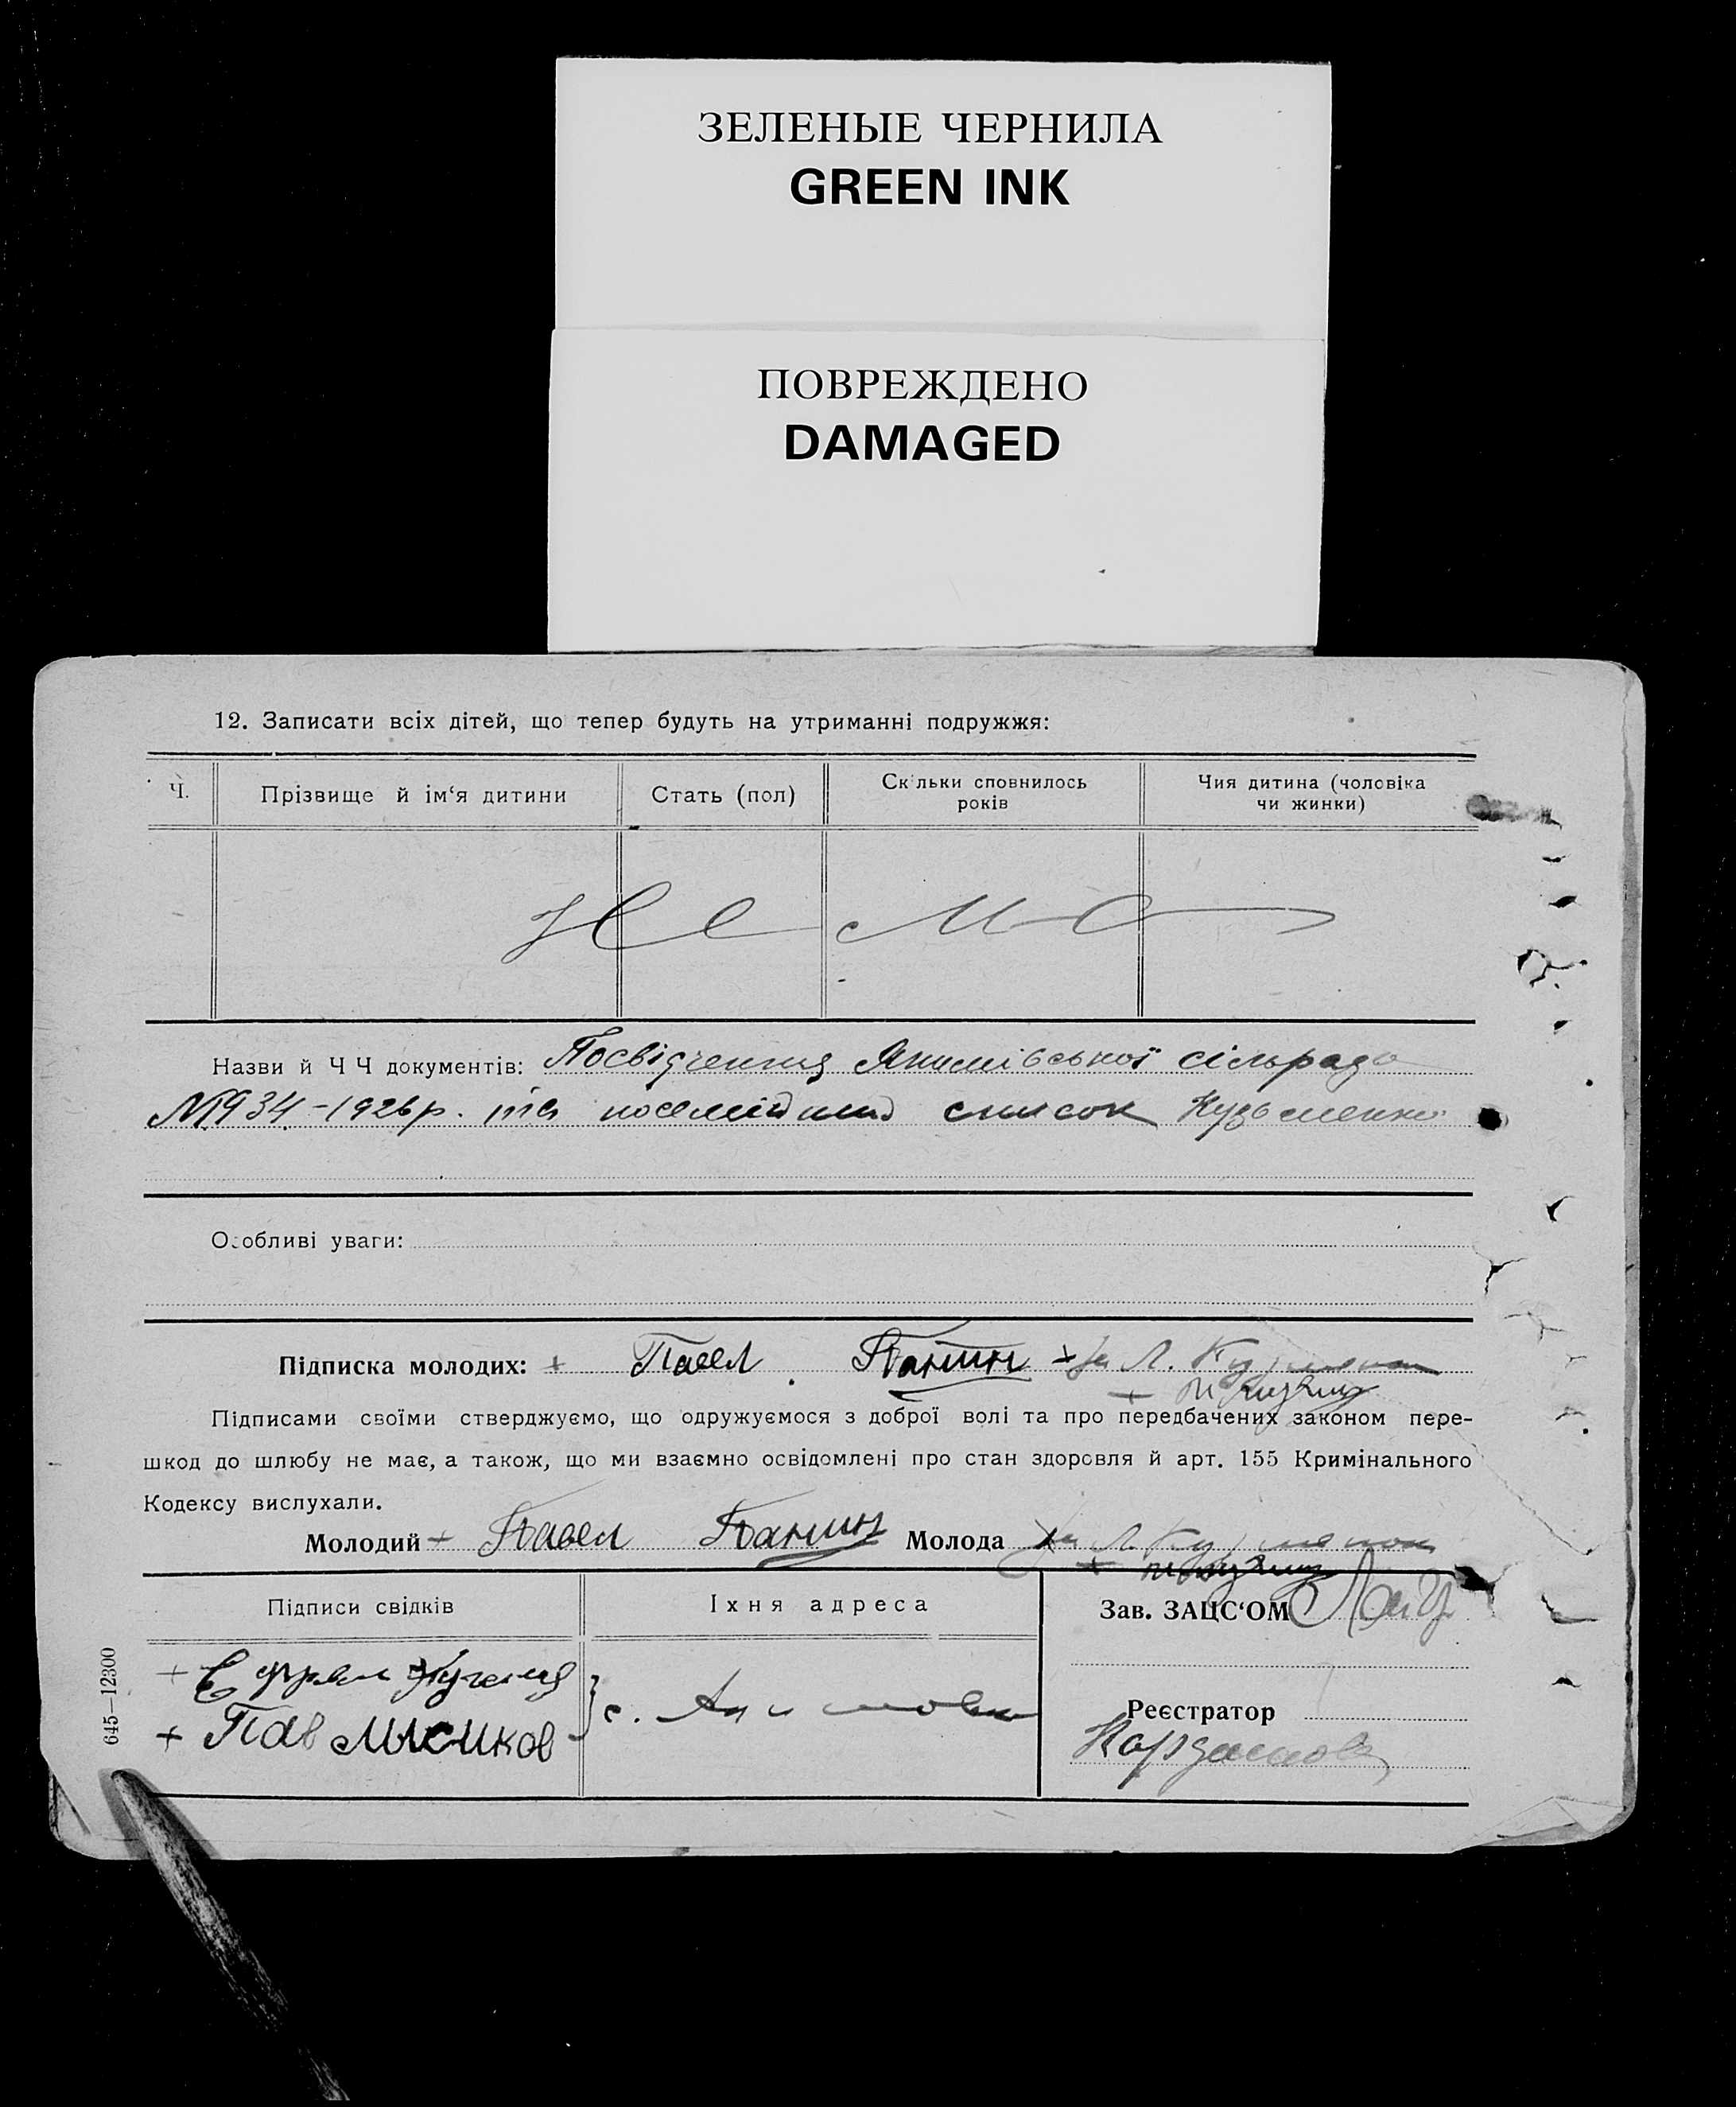 ЗЕЛЕНЫЕ ЧЕРНИЛА
GREEN INK
ПОВРЕЖДЕНО
DAMAGED
12. Записати всіх дітей, що тепер будуть на утриманні подружжя:
Ч.
Прізвище й ім‘я дитини
Стать (пол)
Скільки сповнилось
років
Чия дитина (чоловіка
чи жинки)
Нема
Назви й Ч Ч документів: Посвідчення Якимівської сільради
№1934-1926р. та посемійний список Кузьменко
Особливі уваги:
Підписка молодих: + Павел Панин + за Л.
+
Підписами своїми стверджуємо, що одружуємося з доброї волі та про передбачених законом пере-
шкод до шлюбу не має, а також, що ми взаємно освідомлені про стан здоровля й арт. 155 Кримінального
Кодексу вислухали.
Молодий + Павел Панин Молода за Л.
+
Підписи свідків
Їхня адреса
Зав. ЗАЦС‘ОМ
+ Ефрем
+ Пав Мысиков
с.
Реєстратор
645—12300